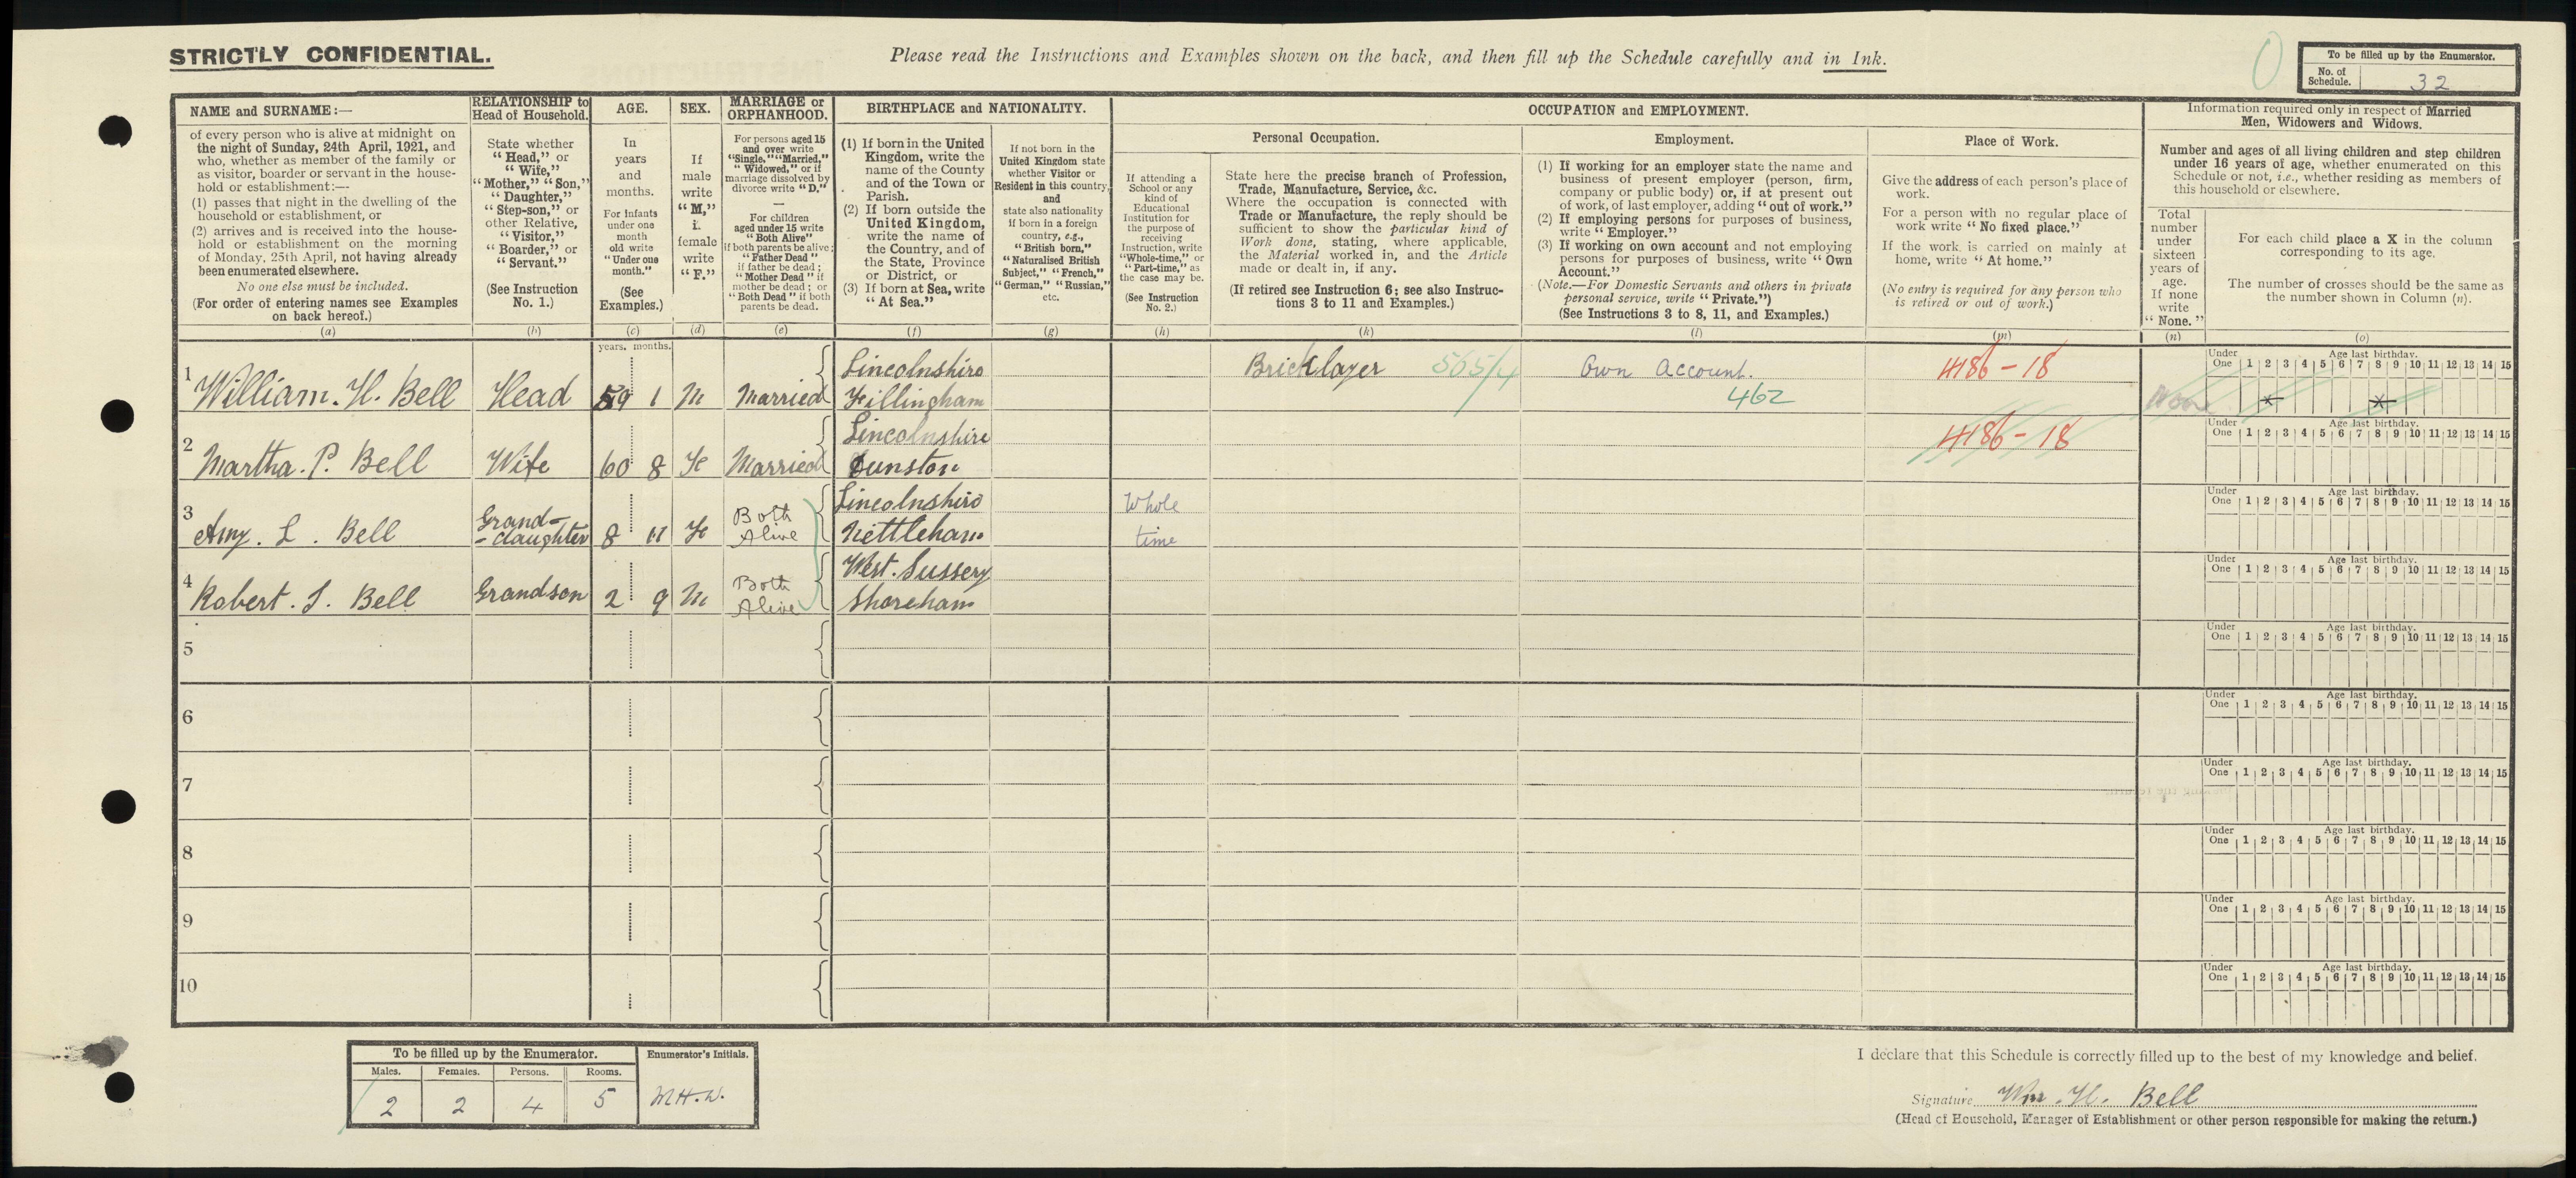 STRICTLY CONFIDENTIAL.
Please read the Instructions and Examples shown on the back, and then fill up the Schedule carefully and in Ink.
To be filled up by the Enumerator.
No. of Schedule. 32
NAME and SURNAME:—
of every person who is alive at midnight on
the night of Sunday, 24th April, 1921, and
who, whether as member of the family or
as visitor, boarder or servant in the house-
hold or establishment:—
(1) passes that night in the dwelling of the
household or establishment, or
(2) arrives and is received into the house-
hold or establishment on the morning
of Monday, 25th April, not having already
been enumerated elsewhere.
No one else must be included.
(For order of entering names see Examples
on back hereof.)
(a)
RELATIONSHIP to
Head of Household.
State whether
"Head," or
"Wife,"
"Mother," "Son,"
"Daughter,"
"Step-son," or
other Relative,
"Visitor,"
"Boarder," or
"Servant."
(See Instruction
No. 1.)
(b)
AGE.
In
years
and
months.
For infants
under one
month
old write
"Under one
month."
(See
Examples.)
(c)
SEX.
If
male
write
"M,"
female
write
"F."
(d)
MARRIAGE or
ORPHANHOOD.
For persons aged 15
and over write
"Single," "Married,"
"Widowed," or if
marriage dissolved by
divorce write "D."
For children
aged under 15 write
"Both Alive"
if both parents be alive;
"Father Dead"
if father be dead;
"Mother Dead" if
mother be dead; or
"Both Dead" if both
parents be dead.
(e)
BIRTHPLACE and NATIONALITY.
(1) If born in the United
Kingdom, write the
name of the County
and of the Town or
Parish.
(2) If born outside the
United Kingdom,
write the name of
the Country, and of
the State, Province
or District, or
(3) If born at Sea, write
"At Sea."
(f)
If not born in the
United Kingdom state
whether Visitor or
Resident in this country,
and
state also nationality
if born in a foreign
country, e.g.,
"British born,"
"Naturalised British
Subject," "French,"
"German," "Russian,"
etc.
(g)
OCCUPATION and EMPLOYMENT.
If attending a
School or any
kind of
Educational
Institution for
the purpose of
receiving
Instruction, write
"Whole-time," or
"Part-time," as
the case may be.
(See Instruction
No. 2.)
(h)
Personal Occupation.
State here the precise branch of Profession,
Trade, Manufacture, Service, &c.
Where the occupation is connected with
Trade or Manufacture, the reply should be
sufficient to show the particular kind of
Work done, stating, where applicable,
the Material worked in, and the Article
made or dealt in, if any.
(If retired see Instruction 6; see also Instruc-
tions 3 to 11 and Examples.)
(k)
Employment.
(1) If working for an employer state the name and
business of present employer (person, firm,
company or public body) or, if at present out
of work, of last employer, adding "out of work."
(2) If employing persons for purposes of business,
write "Employer."
(3) If working on own account and not employing
persons for purposes of business, write "Own
Account."
(Note.—For Domestic Servants and others in private
personal service, write "Private.")
(See Instructions 3 to 8, 11, and Examples.)
(l)
Place of Work.
Give the address of each person's place of
work.
For a person with no regular place of
work write "No fixed place."
If the work is carried on mainly at
home, write "At home."
(No entry is required for any person who
is retired or out of work.)
(m)
Information required only in respect of Married
Men, Widowers and Widows.
Number and ages of all living children and step children
under 16 years of age, whether enumerated on this
Schedule or not, i.e., whether residing as members of
this household or elsewhere.
Total
number
under
sixteen
years of
age.
If none
write
"None."
(n)
For each child place a X in the column
corresponding to its age.
The number of crosses should be the same as
the number shown in Column (n).
(o)
years. months.
1 William. H. Bell Head 59 1 M Married Lincolnshire Fillingham Bricklayer 565/4 Own Account. 462 4186-18 None
Under One 1 2 3 4 5 6 7 8 9 10 11 12 13 14 15 Age last birthday.
x x
2 Martha. P. Bell Wife 60 8 Fe Married Lincolnshire Dunston 4186-18
Under One 1 2 3 4 5 6 7 8 9 10 11 12 13 14 15 Age last birthday.
3 Amy. L. Bell Grand-daughter 8 11 Fe Both Alive Lincolnshire Nettleham Whole time
Under One 1 2 3 4 5 6 7 8 9 10 11 12 13 14 15 Age last birthday.
4 Robert. J. Bell Grandson 2 9 M Both Alive West. Sussex Shoreham
Under One 1 2 3 4 5 6 7 8 9 10 11 12 13 14 15 Age last birthday.
5
Under One 1 2 3 4 5 6 7 8 9 10 11 12 13 14 15 Age last birthday.
6
Under One 1 2 3 4 5 6 7 8 9 10 11 12 13 14 15 Age last birthday.
7
Under One 1 2 3 4 5 6 7 8 9 10 11 12 13 14 15 Age last birthday.
8
Under One 1 2 3 4 5 6 7 8 9 10 11 12 13 14 15 Age last birthday.
9
Under One 1 2 3 4 5 6 7 8 9 10 11 12 13 14 15 Age last birthday.
10
Under One 1 2 3 4 5 6 7 8 9 10 11 12 13 14 15 Age last birthday.
To be filled up by the Enumerator.
Males. Females. Persons. Rooms.
2 2 4 5
Enumerator's Initials.
M.H.W.
I declare that this Schedule is correctly filled up to the best of my knowledge and belief.
Signature Wm. H. Bell
(Head of Household, Manager of Establishment or other person responsible for making the return.)